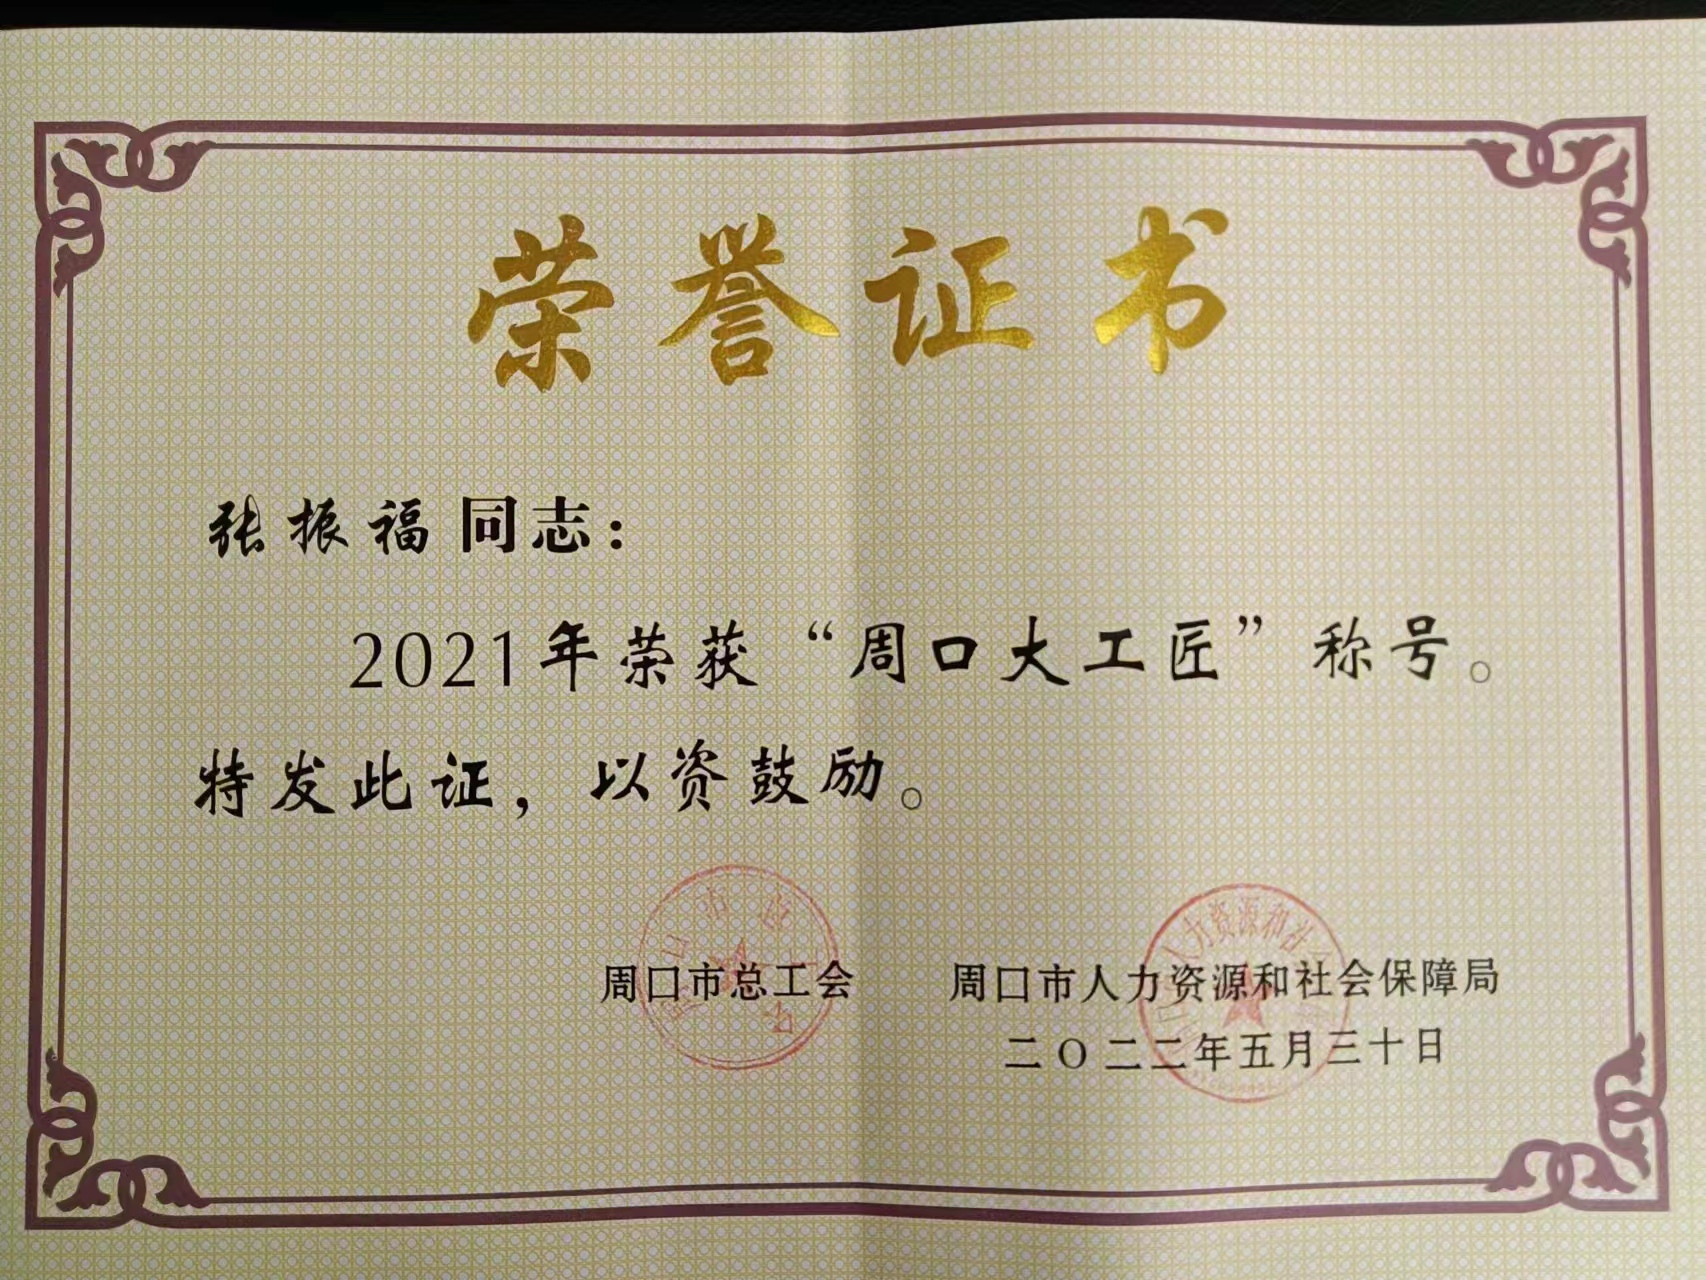 荣誉证书
张振福同志：
2021年荣获“周口大工匠”称号。
特发此证，以资鼓励。
周口市总工会 周口市人力资源和社会保障局
二〇二二年五月三十日
人力资源和社